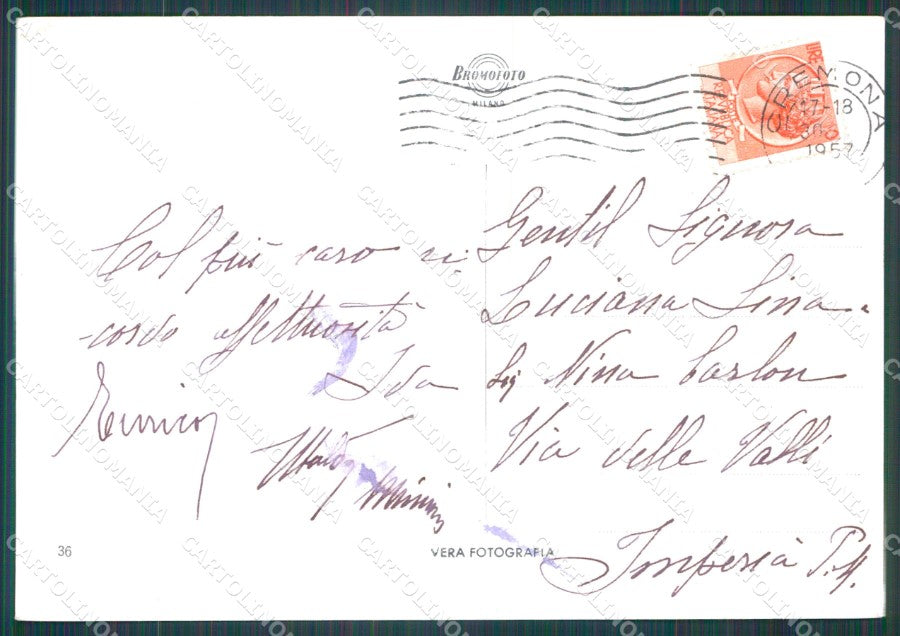 BROMOFOTO
MILANO
CREMONA
17-18
1957
Col più caro ri
-cordo affettuosità
Ida
Enrico
Gentil Signora
Luciana Lina
Sig Nina Carlon
Via delle Valli
Imperia P.M.
36
VERA FOTOGRAFIA
CARTOLINOMANIA